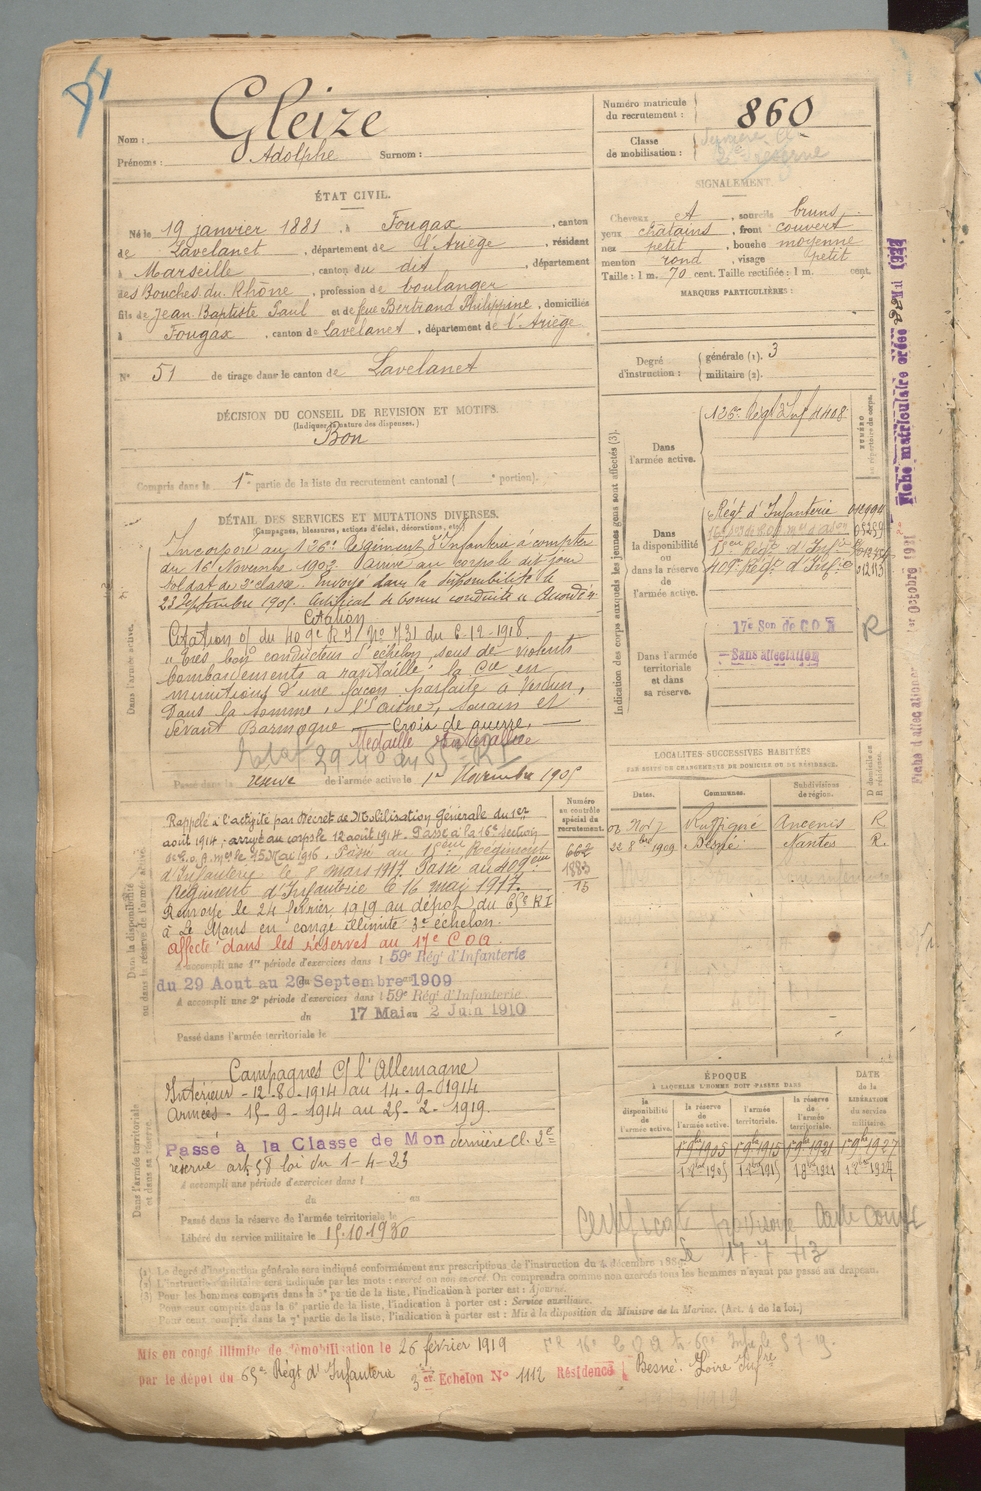 Gleize
Nom :
Prénoms : Adolphe Surnom :
Numéro matricule
du recrutement : 860
Classe
de mobilisation :
ÉTAT CIVIL.
Né le 19 janvier 1881, à Fougax, canton
de Lavelanet, département de l'Ariège, résidant
à Marseille, canton du dit, département
des Bouches du Rhône, profession de boulanger
fils de Jean Baptiste Paul et de feue Bertrand Philippine, domiciliés
à Fougax, canton de Lavelanet, département de l'Ariège
N° 51 de tirage dans le canton de Lavelanet
SIGNALEMENT.
Cheveux et, sourcils bruns,
yeux chatains, front couvert
nez petit, bouche moyenne
menton rond, visage petit
Taille : 1 m. 70 cent. Taille rectifiée : 1 m. cent.
MARQUES PARTICULIÈRES :
Degré
d'instruction :
générale (1). 3
militaire (2).
DÉCISION DU CONSEIL DE REVISION ET MOTIFS.
(Indiquer la nature des dispenses.)
Bon
Compris dans la 1re partie de la liste du recrutement cantonal ( portion).
DÉTAIL DES SERVICES ET MUTATIONS DIVERSES.
(Campagnes, blessures, actions d'éclat, décorations, etc.)
Dans l'armée active.
Incorporé au 126e Régiment d'Infanterie à compter
du 16 Novembre 1902. Arrivé au corps le dit jour
soldat de 2e classe. Envoyé dans la disponibilité le
23 Septembre 1905. Certificat de bonne conduite "Accordé".
Citation
Citation of du 409e R.I. No 731 du 6-12-1918.
"Très bon conducteur d'échelon, sous de violents
bombardements a ravitaillé la Cie en
munitions d'une façon parfaite à Verdun,
dans la Somme, l'Aisne, Souain et
devant
Croix de guerre
Médaille
Passé dans la réserve de l'armée active le 1er Novembre 1905
Indication des corps auxquels les jeunes gens sont affectés (3).
Dans
l'armée active.
126e Régt d'Inf
NUMÉRO
au répertoire du corps.
Dans
la disponibilité
ou
dans la réserve
de
l'armée active.
Régt d'Infanterie
15eme Régt d'Inf
409e Régt d'Infie
Dans l'armée
territoriale
et dans
sa réserve.
17e Son de C O A
Sans affectation
R
Fiche matriculaire créée
1er Octobre 1931
Fiche d'affectation
Dans la disponibilité
ou dans la réserve de l'armée active.
Numéro
au contrôle
spécial du
recrutement.
662
1883
15
Rappelé à l'activité par Décret de Mobilisation Générale du 1er
août 1914; arrivé au corps le 12 août 1914. Passé à la 16e section
de C.O.A. le 15 Mai 1916. Passé au 15eme Régiment
d'Infanterie le 8 mars 1917. Passé au 409eme
Régiment d'Infanterie le 16 mai 1917.
Renvoyé le 24 février 1919 au dépôt du 65e RI
à Le Mans en congé illimité 3e échelon.
Affecté dans les réserves au 17e COA.
A accompli une 1re période d'exercices dans l 59e Rég' d'Infanterie
du 29 Aout au 20 Septembre 1909
A accompli une 2e période d'exercices dans l 59e Rég' d'Infanterie
du 17 Mai au 2 Juin 1910
Passé dans l'armée territoriale le
LOCALITÉS SUCCESSIVES HABITÉES
PAR SUITE DE CHANGEMENTS DE DOMICILE OU DE RÉSIDENCE.
Dates. Communes. Subdivisions de région. D domicile ou R résidence.
Ruffigné Ancenis R
22 8bre 1909 Besné Nantes R.
Dans l'armée territoriale
et dans sa réserve.
Campagnes C/ l'Allemagne
Intérieur - 12-8-1914 au 14-9-1914
Armées - 15-9-1914 au 25-2-1919.
Passé à la Classe de Mon dernière Cl. 2e
réserve art. 58 loi du 1-4-23
A accompli une période d'exercices dans l
du au
Passé dans la réserve de l'armée territoriale le
Libéré du service militaire le 15.10.1930
ÉPOQUE
À LAQUELLE L'HOMME DOIT PASSER DANS
DATE
de la
LIBÉRATION
du service
militaire.
la disponibilité de l'armée active.
la réserve de l'armée active.
l'armée territoriale.
la réserve de l'armée territoriale.
1 9bre 1905 1 9bre 1915 1 9bre 1921 1 9bre 1927
Certificat provisoire Carte
le 17-7-43
(1) Le degré d'instruction générale sera indiqué conformément aux prescriptions de l'instruction du 4 décembre 1889.
(2) L'instruction militaire sera indiquée par les mots : exercé ou non exercé. On comprendra comme non exercés tous les hommes n'ayant pas passé au drapeau.
(3) Pour les hommes compris dans la 5e partie de la liste, l'indication à porter est : Ajourné.
Pour ceux compris dans la 6e partie de la liste, l'indication à porter est : Service auxiliaire.
Pour ceux compris dans la 7e partie de la liste, l'indication à porter est : Mis à la disposition du Ministre de la Marine. (Art. 4 de la loi.)
Mis en congé illimité de démobilisation le 26 février 1919
par le dépôt du 65e Régt d'Infanterie 3e Echelon N° 1112 Résidence Besné. Loire Infre